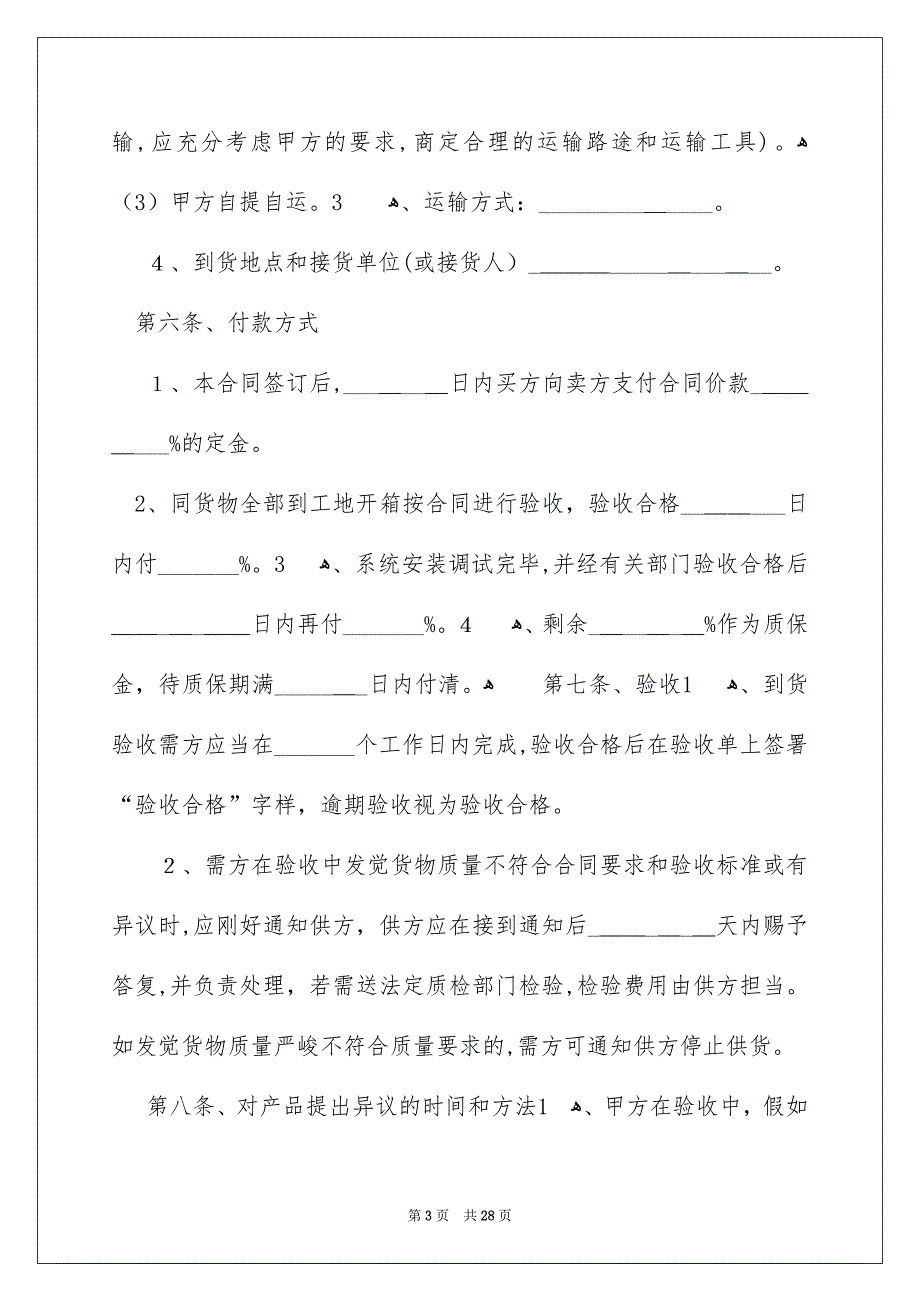 输,应充分考虑甲方的要求,商定合理的运输路途和运输工具)。ﻫ
（3）甲方自提自运。3ﻫ、运输方式：_______________。
４、到货地点和接货单位(或接货人）_____________________。
第六条、付款方式
１、本合同签订后,_________日内买方向卖方支付合同价款_____
_____%的定金。
2、同货物全部到工地开箱按合同进行验收，验收合格_________日
内付_______%。3ﻫ、系统安装调试完毕,并经有关部门验收合格后
____________日内再付_______%。４ﻫ、剩余__________%作为质保
金，待质保期满________日内付清。ﻫ 第七条、验收1ﻫ、到货
验收需方应当在_______个工作日内完成,验收合格后在验收单上签署
“验收合格”字样，逾期验收视为验收合格。
２、需方在验收中发觉货物质量不符合合同要求和验收标准或有
异议时,应刚好通知供方，供方应在接到通知后___________天内赐予
答复,并负责处理，若需送法定质检部门检验,检验费用由供方担当。
如发觉货物质量严峻不符合质量要求的,需方可通知供方停止供货。
第八条、对产品提出异议的时间和方法1ﻫ、甲方在验收中，假如
第 3 页 共 28 页